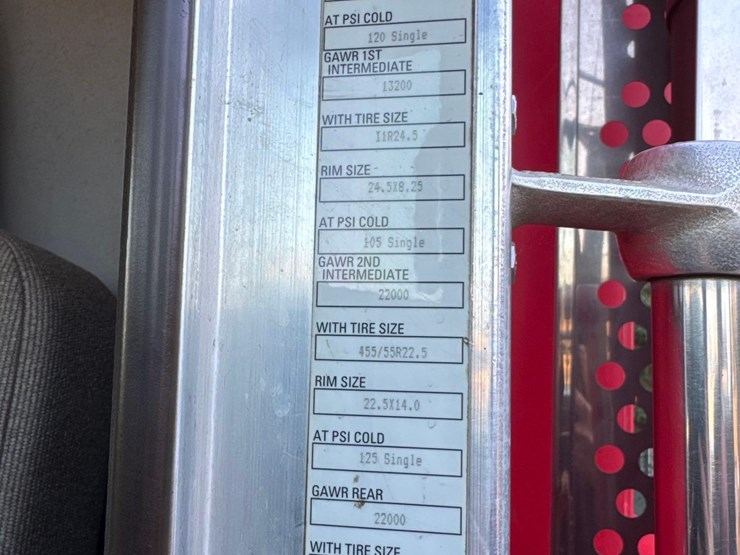 AT PSI COLD
120 Single
GAWR 1ST
INTERMEDIATE
13200
WITH TIRE SIZE
11R24.5
RIM SIZE
24.5X8.25
AT PSI COLD
105 Single
GAWR 2ND
INTERMEDIATE
22000
WITH TIRE SIZE
455/55R22.5
RIM SIZE
22.5X14.0
AT PSI COLD
125 Single
GAWR REAR
22000
WITH TIRE SIZE